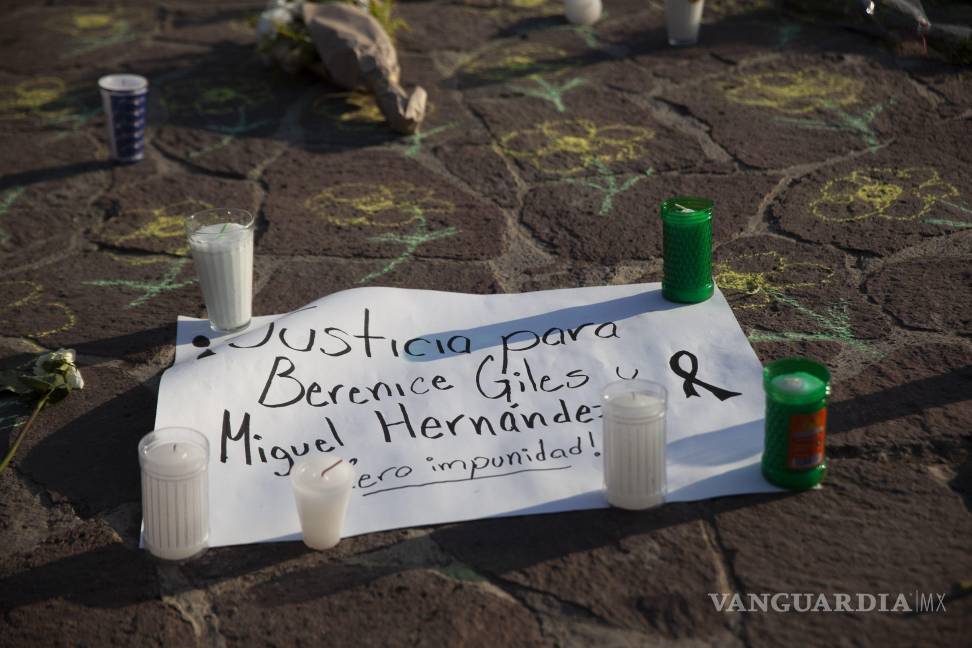 ¡Justicia para
Berenice Giles y
Miguel Hernández
¡Cero impunidad!
VANGUARDIA|MX